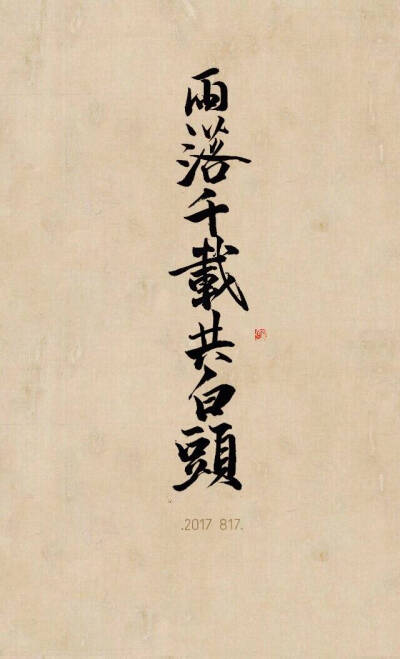 雨落千載共白頭
.2017 817.